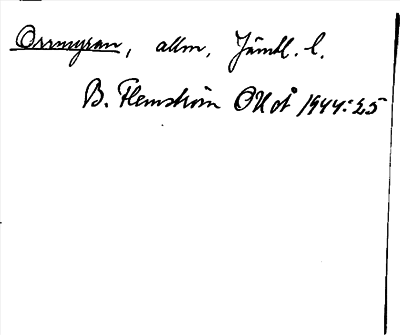 Ormmyran, allm, Jämtl. l.
B. Flemström OUoÅ 1944:25